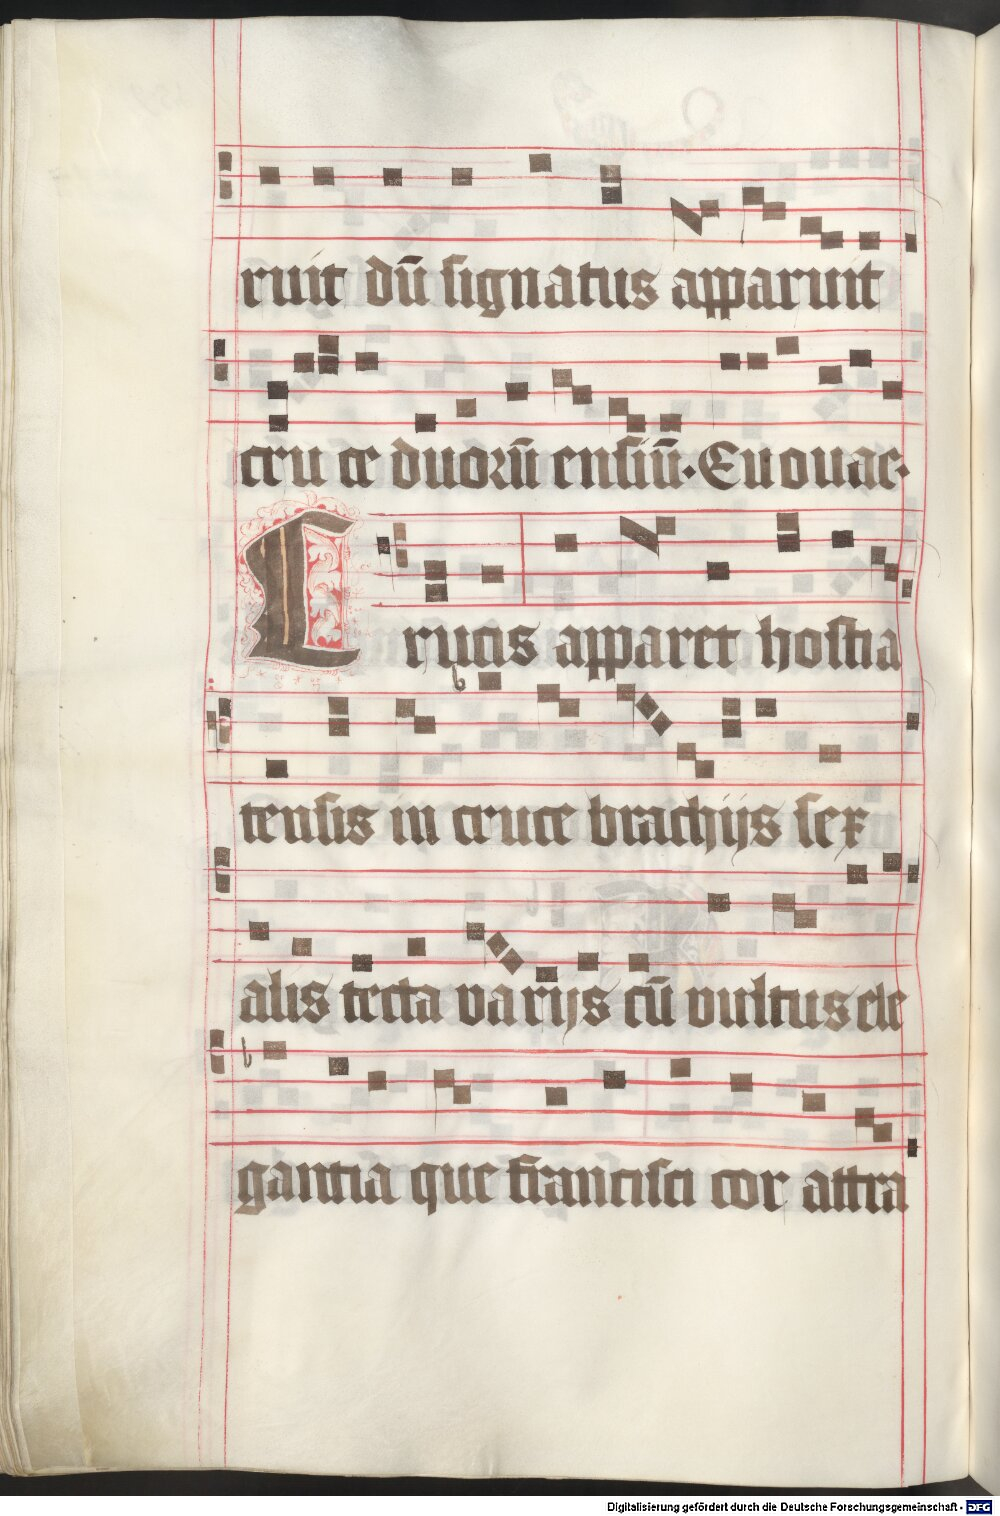 ruit dū signatus apparuit
cruce duorū ensiū. Euouae.
Crucis apparet hostia
tensis in cruce brachijs sex
alis tecta varijs cū vultus ele
gantia que francisci cor attra
Digitalisierung gefördert durch die Deutsche Forschungsgemeinschaft - DFG